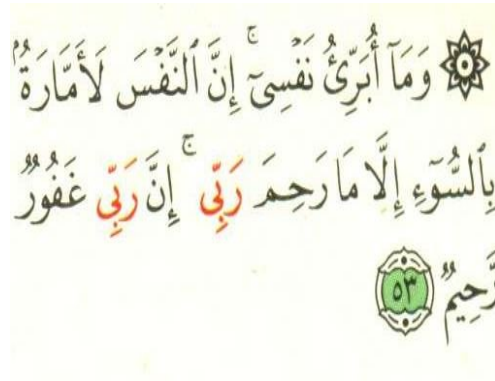 ۞ وَمَآ أُبَرِّئُ نَفْسِىٓ ۚ إِنَّ ٱلنَّفْسَ لَأَمَّارَةٌۢ
بِٱلسُّوٓءِ إِلَّا مَا رَحِمَ رَبِّىٓ ۚ إِنَّ رَبِّى غَفُورٌ
رَّحِيمٌ ٥٣